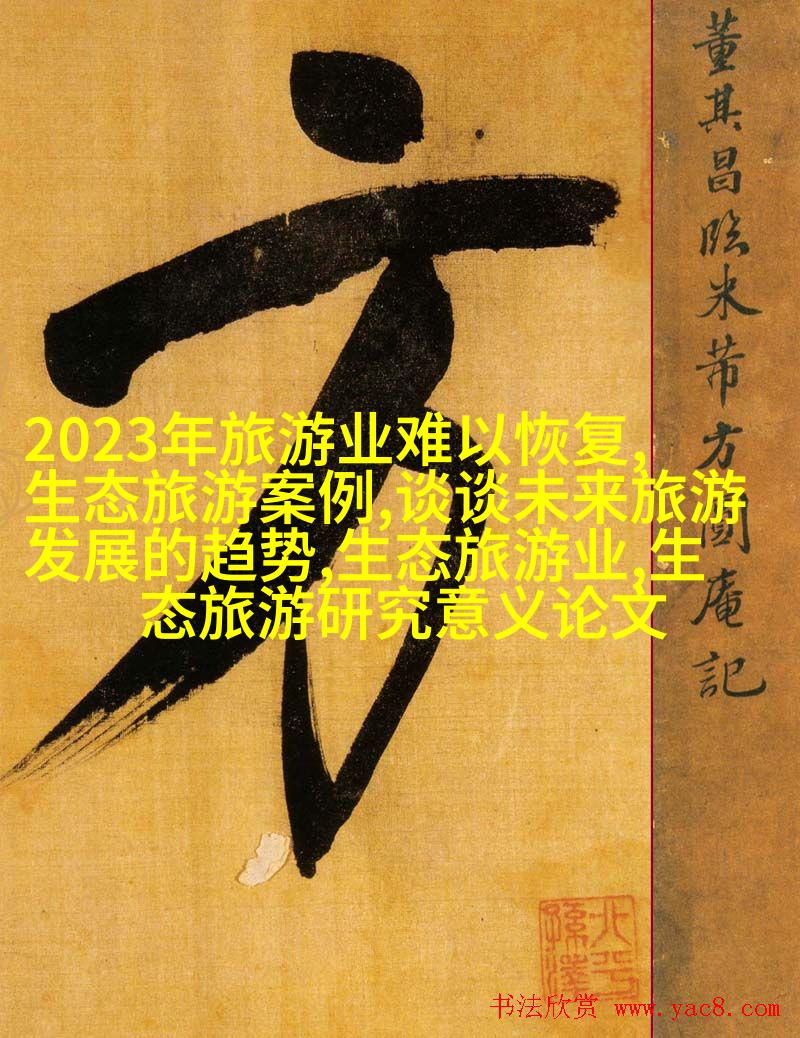 方
董其昌臨米芾方圓庵記
2023年旅游业难以恢复,
生态旅游案例,谈谈未来旅游
发展的趋势,生态旅游业,生
态旅游研究意义论文
北平
孫澤
书法欣赏 www.yac8.com